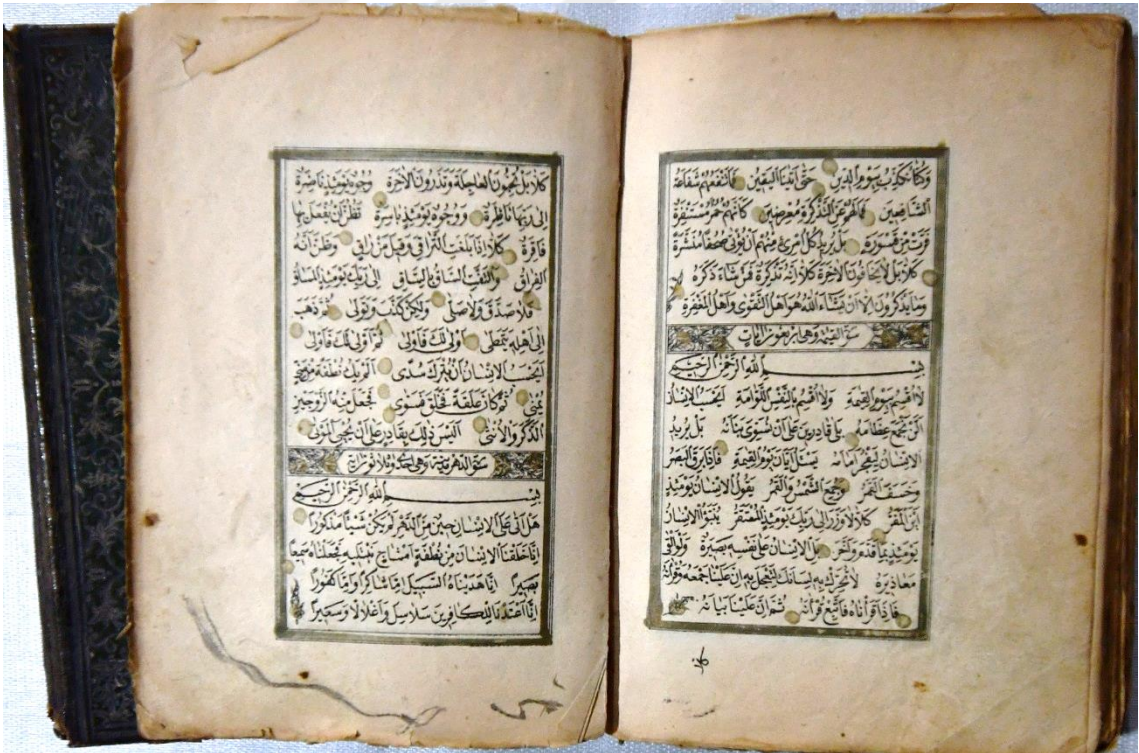 وكنا نكذب بيوم الدين حتى اتينا اليقين فما تنفعهم شفاعة
الشافعين فما لهم عن التذكرة معرضين كانهم حمر مستنفرة
فرت من قسورة بل يريد كل امرئ منهم ان يؤتى صحفا منشرة
كلا بل لا يخافون الاخرة كلا انه تذكرة فمن شاء ذكره
وما يذكرون الا ان يشاء الله هو اهل التقوى واهل المغفرة
سورة القيمة وهي اربعون ايات
بسم الله الرحمن الرحيم
لا اقسم بيوم القيمة ولا اقسم بالنفس اللوامة ايحسب الانسان
الن نجمع عظامه بلى قادرين على ان نسوى بنانه بل يريد
الانسان ليفجر امامه يسئل ايان يوم القيمة فاذا برق البصر
وخسف القمر وجمع الشمس والقمر يقول الانسان يومئذ
اين المفر كلا لا وزر الى ربك يومئذ المستقر ينبؤا الانسان
يومئذ بما قدم واخر بل الانسان على نفسه بصيرة ولو القى
معاذيره لا تحرك به لسانك لتعجل به ان علينا جمعه وقرانه
فاذا قراناه فاتبع قرانه ثم ان علينا بيانه
كلا
كلا بل تحبون العاجلة وتذرون الاخرة وجوه يومئذ ناضرة
الى ربها ناظرة ووجوه يومئذ باسرة تظن ان يفعل بها
فاقرة كلا اذا بلغت التراقى وقيل من راق وظن انه
الفراق والتفت الساق بالساق الى ربك يومئذ المساق
فلا صدق ولا صلى ولكن كذب وتولى ثم ذهب
الى اهله يتمطى اولى لك فاولى ثم اولى لك فاولى
ايحسب الانسان ان يترك سدى الم يك نطفة من منى
يمنى ثم كان علقة فخلق فسوى فجعل منه الزوجين
الذكر والانثى اليس ذلك بقادر على ان يحيى الموتى
سورة الدهر مدنية وهي احدى وثلاثون ايات
بسم الله الرحمن الرحيم
هل اتى على الانسان حين من الدهر لم يكن شيئا مذكورا
انا خلقنا الانسان من نطفة امشاج نبتليه فجعلناه سميعا
بصيرا انا هديناه السبيل اما شاكرا واما كفورا
انا اعتدنا للكافرين سلاسل واغلالا وسعيرا